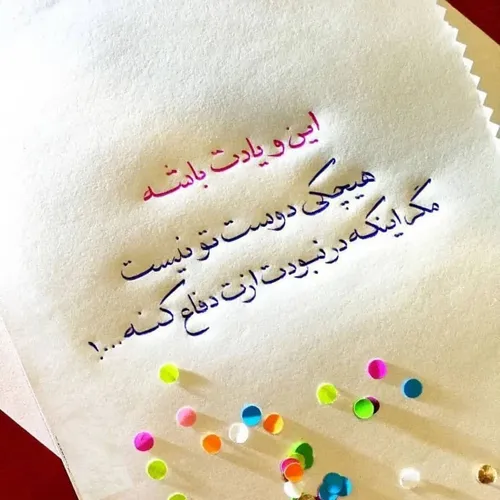 این و یادت باشه
هیچکی دوست تو نیست
مگر اینکه در نبودت ازت دفاع کنه...!